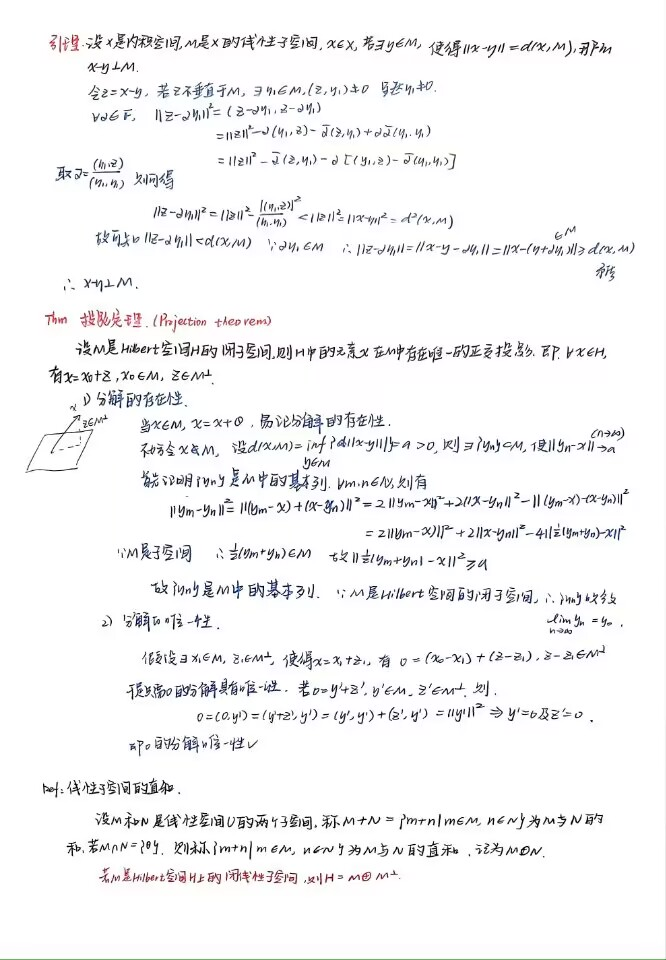 引理. 设X是内积空间, M是X的线性子空间, x∈X, 若∃y∈M, 使得||x-y||=d(x,M), 那么
x-y⊥M.
令z=x-y, 若z不垂直于M, ∃y₁∈M, (z,y₁)≠0 显然y₁≠0.
∀α∈F, ||z-αy₁||²=(z-αy₁, z-αy₁)
=||z||²-α(y₁,z)-ᾱ(z,y₁)+αᾱ(y₁,y₁)
=||z||²-ᾱ(z,y₁)-α[(y₁,z)-ᾱ(y₁,y₁)]
取ᾱ=(y₁,z)/(y₁,y₁) 则可得
||z-αy₁||²=||z||²-|(y₁,z)|²/(y₁,y₁)<||z||²=||x-y||²=d²(x,M)
故可知||z-αy₁||<d(x,M) ∵αy₁∈M ∴||z-αy₁||=||x-y-αy₁||=||x-(y+αy₁)||≥d(x,M)
∈M
矛盾
∴ x-y⊥M.
Thm 投影定理.(Projection theorem)
设M是Hilbert空间H的闭子空间,则H中的元素x在M中存在唯一的正交投影. 即∀x∈H,
有x=x₀+z, x₀∈M, z∈M⊥.
x
z∈M⊥
1) 分解的存在性.
当x∈M, x=x+θ, 易记分解的存在性.
不妨令x∉M, 设d(x,M)=inf{d||x-y||}=a>0, 则∃{yn}⊂M, 使||yn-x||→a
y∈M
(n→∞)
能证明{yn}是M中的基本列. ∀m,n∈N, 则有
||ym-yn||²=||(ym-x)+(x-yn)||²=2||ym-x||²+2||x-yn||²-||(ym-x)-(x-yn)||²
=2||ym-x||²+2||x-yn||²-4||½(ym+yn)-x||²
∵M是子空间 ∴½(ym+yn)∈M 故||½(ym+yn)-x||²≥a
故{yn}是M中的基本列. ∵M是Hilbert空间的闭子空间, ∴{yn}收敛
lim yn=y₀.
n→∞
2) 分解的唯一性.
假设∃x₁∈M, z₁∈M⊥, 使得x=x₁+z₁, 有 0=(x₀-x₁)+(z-z₁), z-z₁∈M⊥
0的分解具有唯一性. 若0=y'+z', y'∈M, z'∈M⊥, 则
0=(0,y')=(y'+z',y')=(y',y')+(z',y')=||y'||² ⇒ y'=0及z'=0.
即0的分解唯一性✓
Def: 线性子空间的直和.
设M和N是线性空间U的两个子空间. 称M+N={m+n|m∈M, n∈N}为M与N的
和, 若M∩N={θ}, 则称{m+n|m∈M, n∈N}为M与N的直和, 记为M⊕N.
若M是Hilbert空间H上的闭线性子空间, 则H=M⊕M⊥.